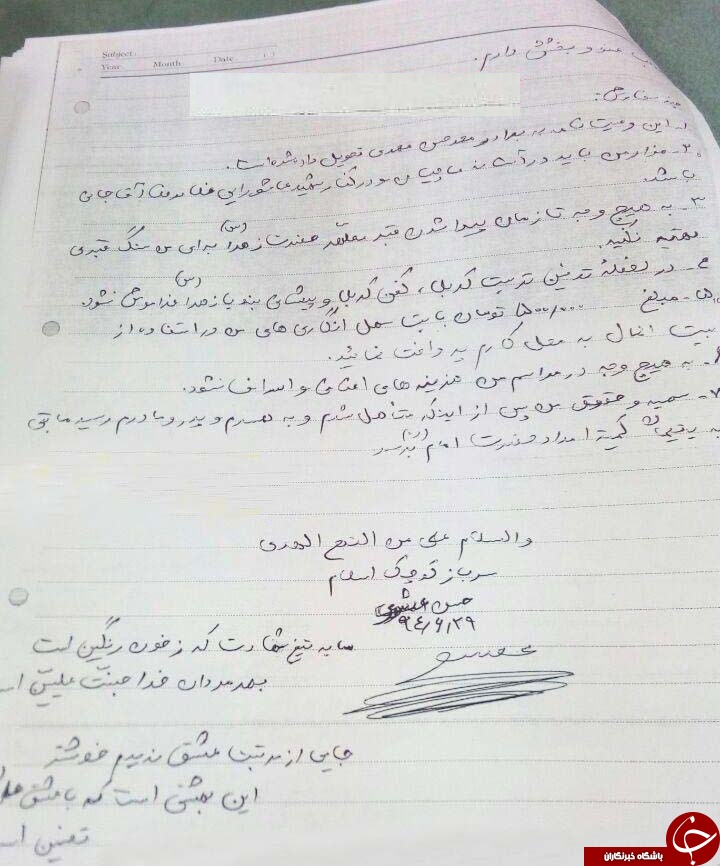 Subject:
Year. Month Date ( )
عفو و بخشش دارم.
چند سفارش:
۱. این وصیت نامه به برادرم محسن مهدی تحویل داده شده است.
۲- مزار من باید در آستانه و در کنار شهید عاشورایی غلامرضا آقاجانی
باشد.
۳- به هیچ وجه تا زمان پیدا شدن قبر مطهر حضرت زهرا (س) برای من سنگ قبری
تهیه نکنید.
۴- در لحظهٔ تدفین تربت کربلا، کفن کربلا و پیشانی بند یا زهرا (س) فراموش نشود.
۵- مبلغ ۵۰۰/۰۰۰ تومان بابت سهل انگاری های من در استفاده از
بیت المال به محل کارم پرداخت نمائید.
۶- به هیچ وجه در مراسم من هزینه های اضافی و اسراف نشود.
۷- سهمیه و حقوق من پس از اینکه متأهل شدم و به همسرم و پدر و مادرم رسید مابقی
به یتیمان کمیته امداد حضرت امام (ره) برسد
والسلام علی من التبع الهدی
سرباز کوچک اسلام
حسن عشوری
۹۴/۶/۲۹
سایه تیغ شهادت که ز خون رنگین است
بهر مردان خدا جنت علیین
جایی از تربت عشق ندیدم خوشتر
این بهشتی است که با عشق
تضمین
باشگاه خبرنگاران